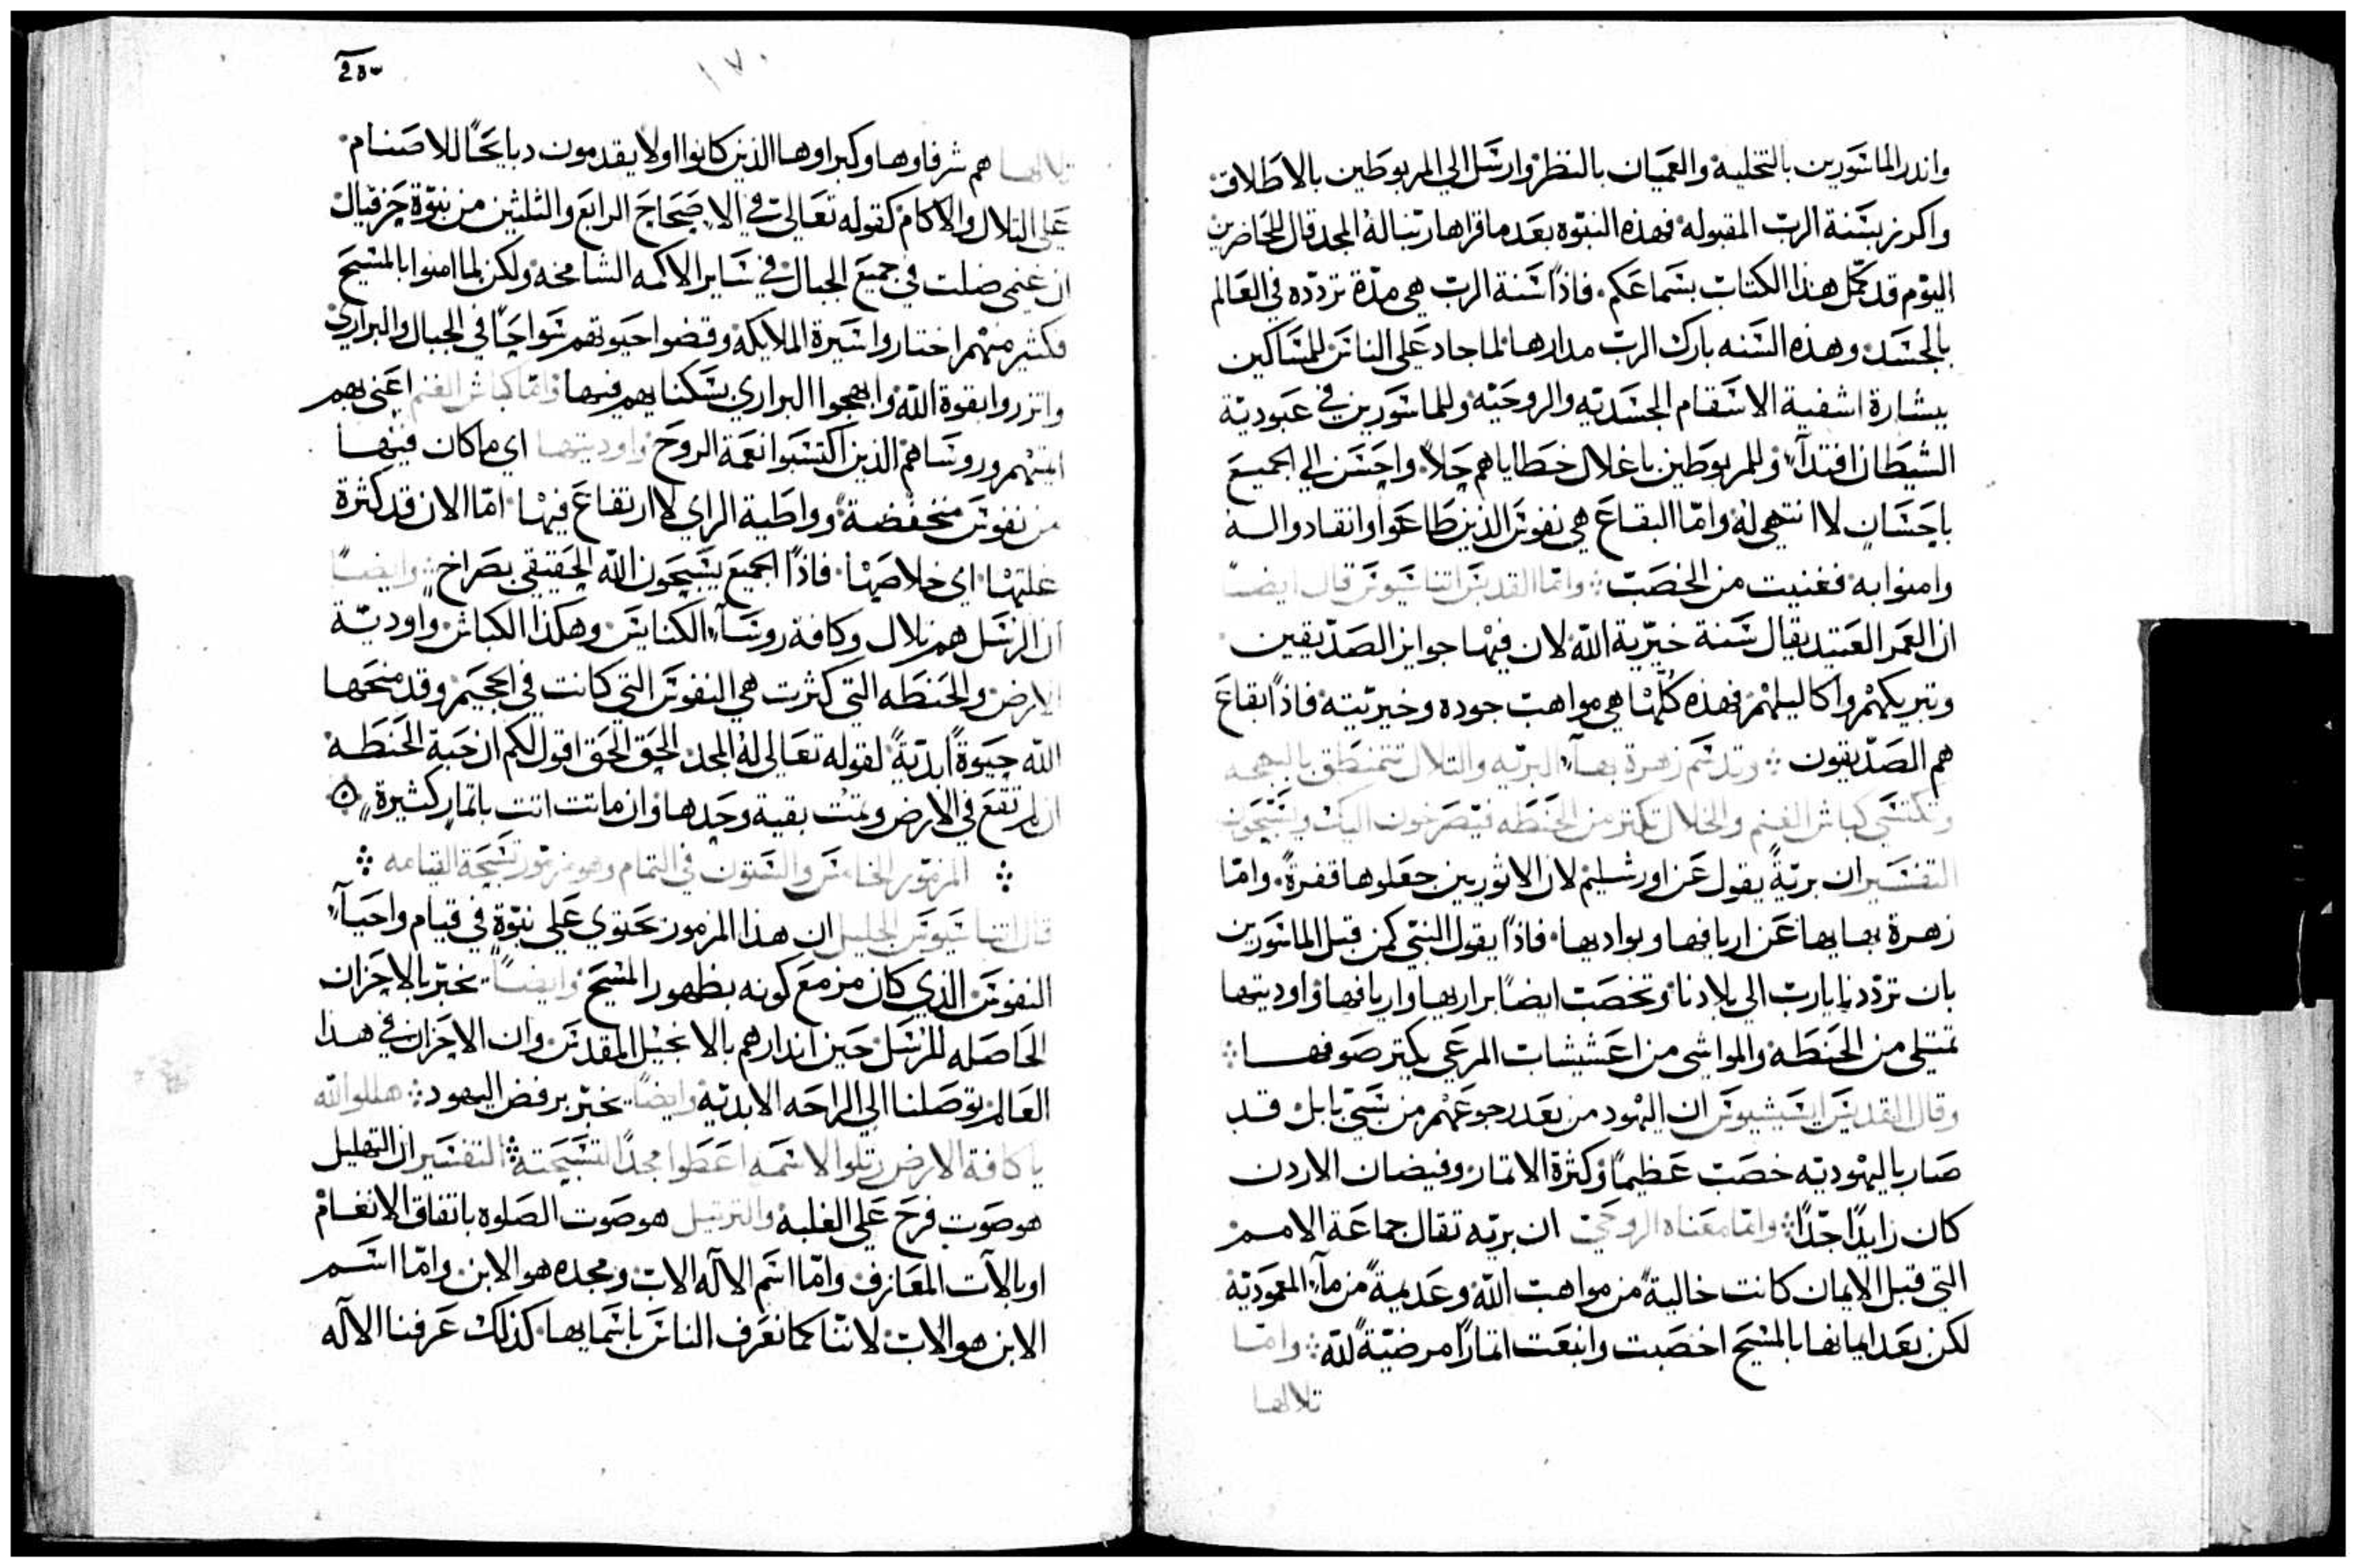 واندر الماسورين بالتخليه والعميان بالنظر وارسل الي المربوطين بالاطلاق
واكرز بسنة الرب المقبوله فهذه النبوه بعد ما قراها ربنا له المجد قال للحاضرين
اليوم قد كمل هذا الكتاب بسماعكم فاذًا سنة الرب هي مدة تردده في العالم
بالجسد وهذه السنه بارك الرب مدارها لما جاد علي الناس للمساكين
ببشارة اشفية الاسقام الجسديه والروحيه وللماسورين في عبودية
الشيطان افتدآء وللمربوطين باغلال خطاياهم حلاً واحسن الي الجميع
باحسان لا انتهي له واما البقاع هي نفوس الذين طاعوا وانقادوا اليه
وامنوا به فغنيت من الخصب واما القديس اتناسيوس قال ايضًا
ان العمر العتيد يقال سنة خيرية الله لان فيها جوايز الصديقين
وتبريكهم واكاليلهم فهذه كلها هي مواهب جوده وخيريته فاذًا بقاع
هم الصديقون وتدسم زهرة بهآء البريه والتلال تتمنطق بالبهجه
وتكتسي كباش الغنم والخلال تكتر من الحنطه فيصرخون اليك ويسبحون
التفسير ان بريةً يقول عن اورشليم لان الاثوريين جعلوها قفرةً واما
زهرة بهايها عن اريافها وبواديها فاذًا يقول النبي كمن قبل الماسورين
بان ترددنا يارب الي بلادنا وتخصب ايضًا براريها واريافها واوديتها
تمتلي من الحنطه والمواشي من اعشيشات المرعي يكتر صوفها
وقال القديس ايسيشيوس ان اليهود من بعد رجوعهم من سبي بابل قد
صار باليهوديه خصب عظيمًا وكثرة الاتمار وفيضان الاردن
كان زايدًا جدًا واما معناه الروحي ان بريه تقال جماعة الامم
التي قبل الايمان كانت خاليةً من مواهب الله وعديمةً من مآء المعموديه
لكن بعد ايمانها بالمسيح اخصبت واينعت اتمارًا مرضيةً لله واما
تلالها
٢٥٠
١٧٠
تلالها هم شرفاوها وكبراوها الذين كانوا اولا يقدمون دبايحًا للاصنام
علي التلال والاكام كقوله تعالي في الاصحاح الرابع والثلثين من نبوة حزقيال
ان غنمي ضلت في جميع الجبال في ساير الاكمه الشامخه ولكن لما امنوا بالمسيح
فكثير منهم اختاروا سيرة الملايكة وقضوا حيوتهم سواحًا في الجبال والبراري
واتزروا بقوة الله وابهجوا البراري بسكناهم فيها واما كباش الغنم اعني بهم
ايمتهم وروساهم الذين اكتسبوا نعمة الروح واوديتها اي ما كان فيها
من نفوس منخفضة وواطية الراي لا ارتفاع فيها اما الان قد كثرة
غلتها اي خلاصها فاذًا الجميع يسبحون الله الحقيقي بصراخ وايضًا
ان الرسل هم تلال وكافة روسآء الكنايس وهكذا الكباش واودية
الارض والحنطه التي كثرت هي النفوس التي كانت في الجحيم وقد منحها
الله حيوةً ابديةً لقوله تعالي له المجد الحق الحق اقول لكم ان حبة الحنطه
ان لم تقع في الارض وتمت بقية وحدها وان ماتت اتت باتمار كثيرة
المزمور الخامس والستون في التمام وهو مزمور تسبحة القيامه
قال اتناسيوس الجليل ان هذا المزمور يحتوي علي نبوة في قيام واحيآء
النفوس الذي كان مزمع كونه بظهور المسيح وايضًا يخبر بالاحزان
الحاصله للرسل حين اندارهم بالانجيل المقدس وان الاحزان في هذا
العالم توصلنا الي الراحه الابديه وايضًا يخبر برفض اليهود هللوا لله
يا كافة الارض رتلوا لاسمه اعطوا مجدًا لتسبحته التفسير ان التهليل
هو صوت فرح علي الغلبه والترتيل هو صوت الصلوه باتفاق الانغام
او بالآت المعازف واما اسم الاله الاب ومجده هو الابن واما اسم
الابن هو الاب لاننا كما نعرف الناس باسمايها كذلك عرفنا الاله